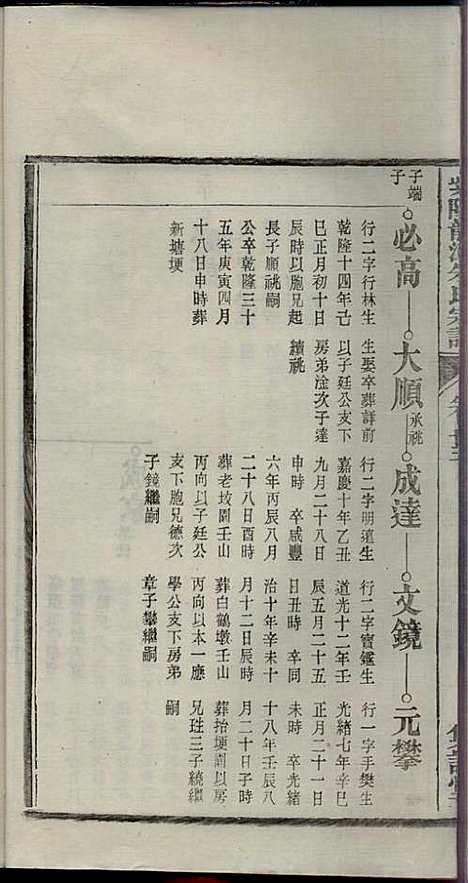 子端
子
必高
大順
承祧
成達
文鏡
元攀
行二字行林生
乾隆十四年己
巳正月初十日
辰時以胞兄起
長子順祧嗣
公卒乾隆三十
五年庚寅四月
十八日申時葬
新塘埂
生娶卒葬詳前
以子廷公支下
房弟淦次子達
續祧
行二字明道生
嘉慶十年乙丑
九月二十八日
申時 卒咸豐
六年丙辰八月
二十八日酉時
葬老坟園壬山
丙向以子廷公
支下胞兄德次
子鏡繼嗣
行二字寶鑑生
道光十二年壬
辰五月二十五
日丑時 卒同
治十年辛未十
月十二日辰時
葬白鶴墩壬山
丙向以本一應
學公支下房弟
章子攀繼嗣
行一字手樊生
光緒七年辛巳
正月二十一日
未時 卒光緒
十八年壬辰八
月二十日子時
葬抬埂園以房
兄珄三子繞繼
嗣